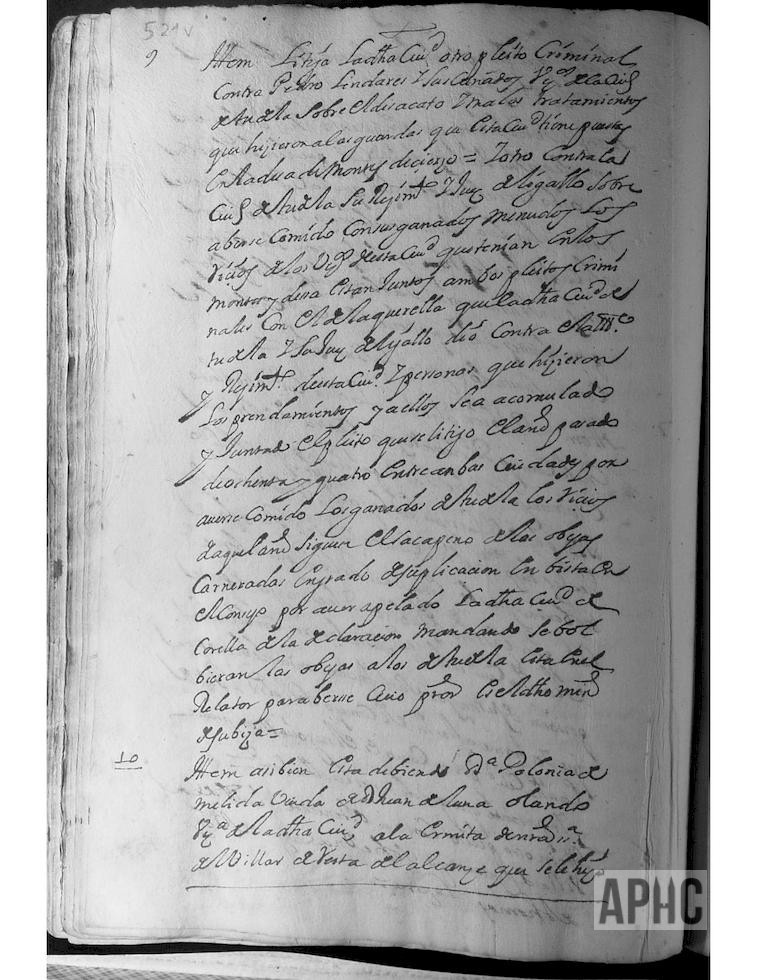 521v
9 Ittem Litija Ladha Ciud otro pleito Criminal
Contra Pedro Lindares y sus Criados Vzos de la Ciud
de tudela sobre el desacato y malos tratamientos
que hizieron a los guardas que esta Ciud tiene puestas
En la de montes de cierzo = y otro Contra la
Ciud de tudela su Rejimto y Juez sobre
aberse Comido Consusganados menudos Los
Vicios de los Vzos desta Ciud que tenian En los
montes y estan Juntos ambos pleitos Crimi
nales Con el de la querella que ladha Ciud de
tudela y su Juez dio Contra el Allde
y Rejimto desta Ciud y personas que hizieron
Los prendamientos y a ellos sea acomulado
y Juntado el pleito que se litijo el año pasado
de ochenta y quatro Entre ambas Ciudades por
averse Comido Los ganados de tudela los Vicios
de aquel año siguese el de las obejas
Carneradas En grado de suplicacion En bista En
el Consejo por aver apelado Ladha Ciud de
Corella de la declaracion mandando se bol
bieran las obejas a los de tudela esta En el
Relator para berse Cuio pror es el dho min
de subiza =
10 Ittem asibien esta debiendo Da Polonia de
melida Viuda de D Juan de luna olando
Vza de la dha Ciud a la Ermita de nra sra
de Villar de Resta del alcanze que se le hizo
APHC